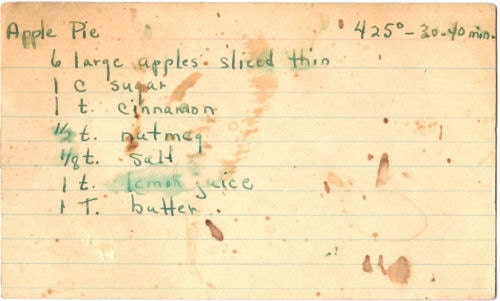 Apple Pie 425° - 30-40 min.
6 large apples sliced thin
1 c sugar
1 t. cinnamon
1/2 t. nutmeg
1/8 t. salt
1 t. lemon juice
1 T. butter